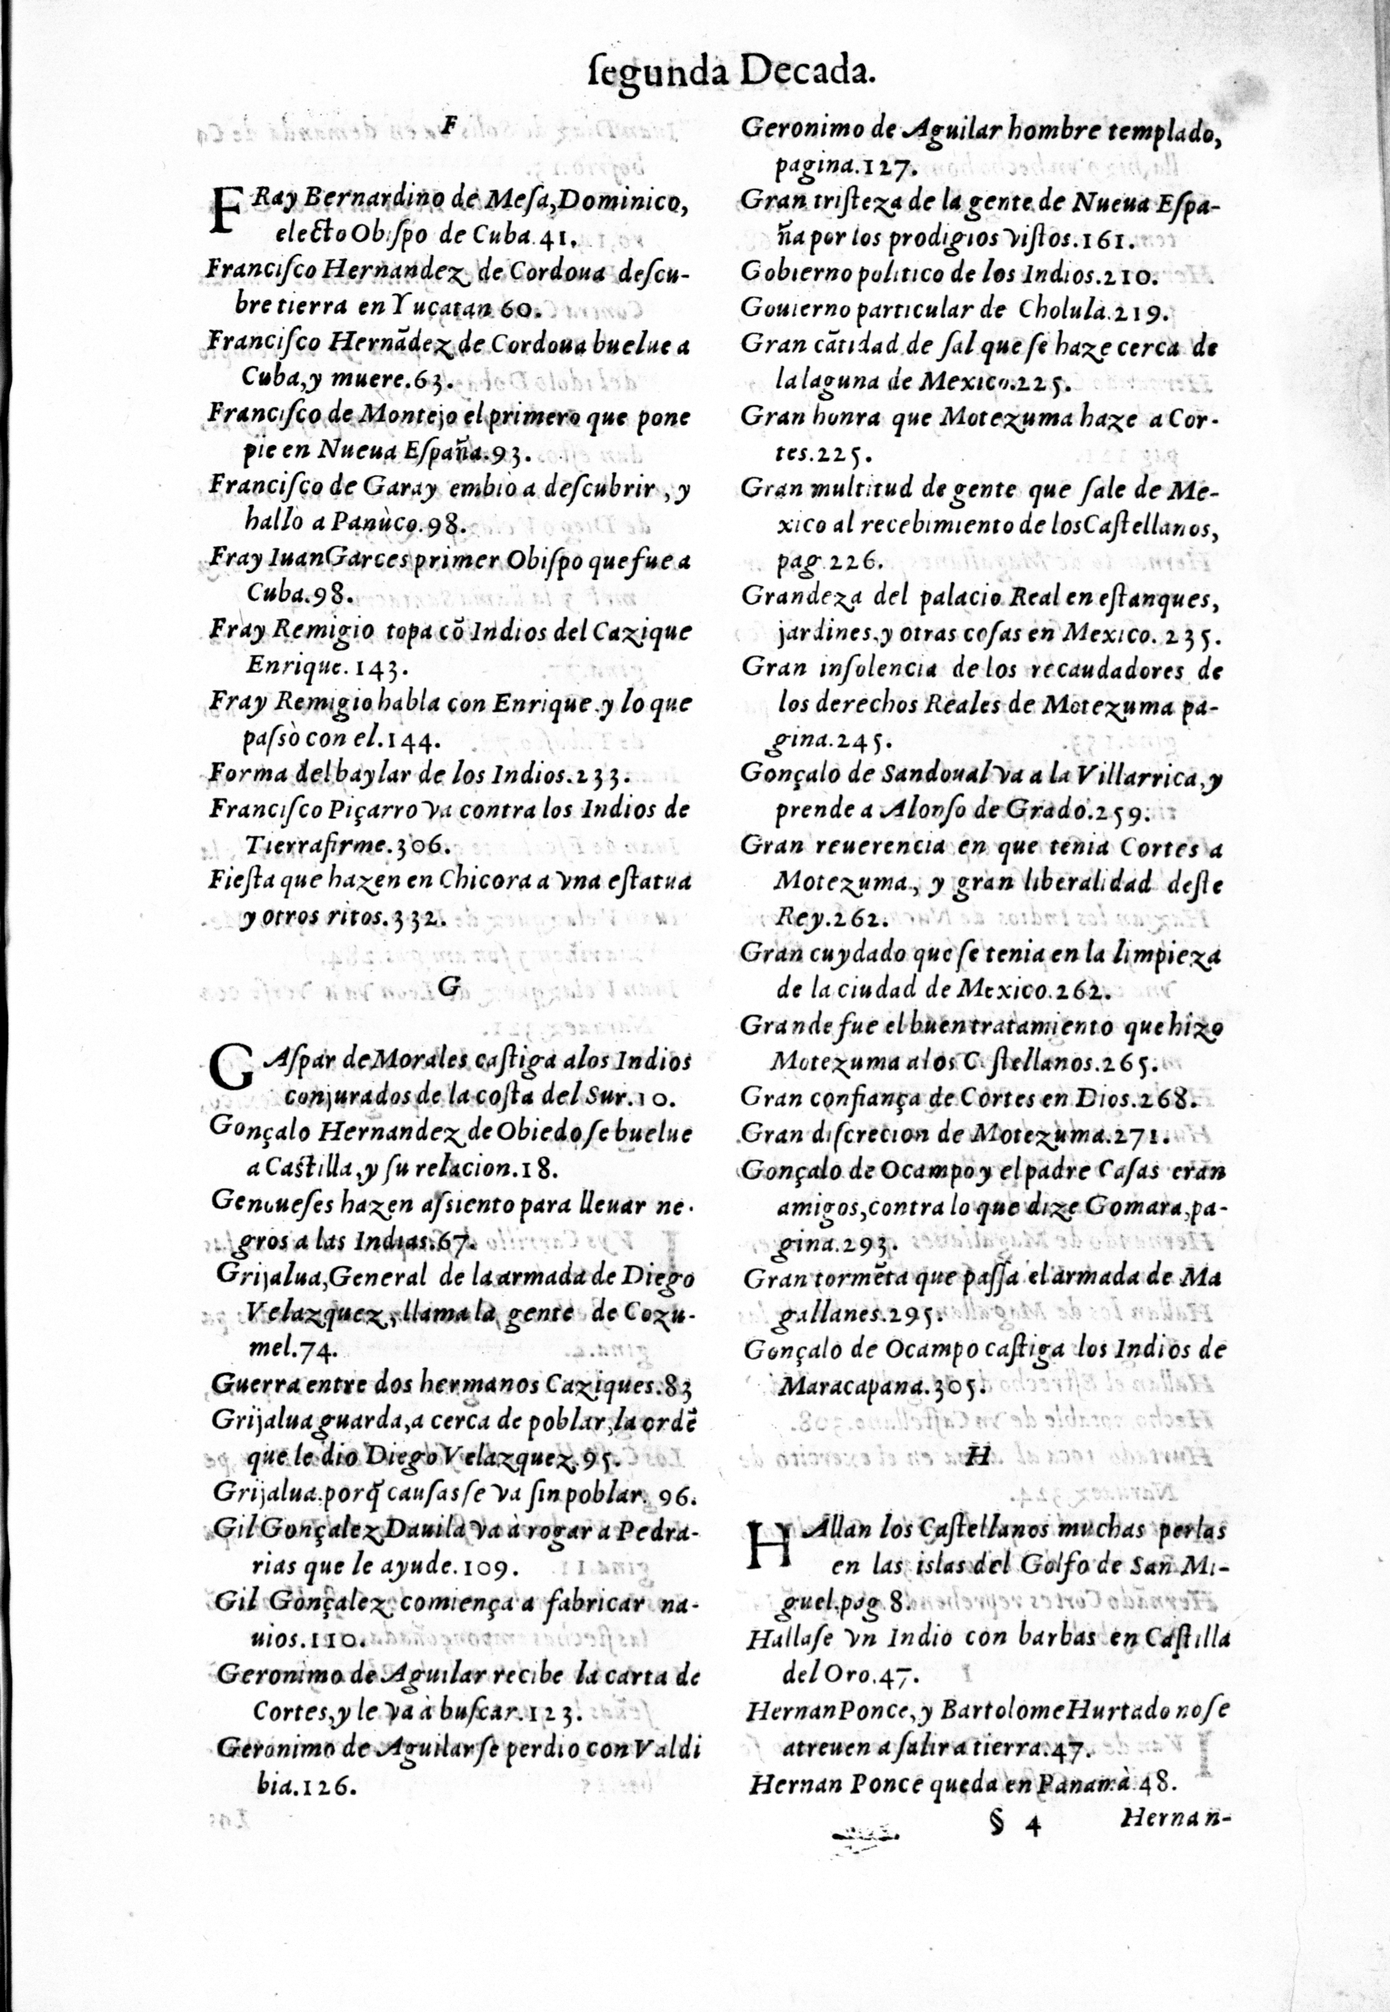 ſegunda Decada.
F
FRay Bernardino de Meſa, Dominico,
electo Obiſpo de Cuba. 41.
Franciſco Hernandez de Cordoua deſcu-
bre tierra en Yucatan 60.
Franciſco Hernãdez de Cordoua buelue a
Cuba, y muere. 63.
Franciſco de Montejo el primero que pone
pie en Nueua Eſpaña. 93.
Franciſco de Garay embiò a deſcubrir, y
hallò a Panùco. 98.
Fray Iuan Garces primer Obiſpo que fue a
Cuba. 98.
Fray Remigio topa cõ Indios del Cazique
Enrique. 143.
Fray Remigio habla con Enrique. y lo que
paſsò con el. 144.
Forma del baylar de los Indios. 233.
Franciſco Piçarro va contra los Indios de
Tierrafirme. 306.
Fieſta que hazen en Chicora a vna eſtatua
y otros ritos. 332.
G
GAſpar de Morales caſtiga a los Indios
conjurados de la coſta del Sur. 10.
Gonçalo Hernandez de Obiedo ſe buelue
a Caſtilla, y ſu relacion. 18.
Genoueſes hazen aſsiento para lleuar ne-
gros a las Indias. 67.
Grijalua, General de la armada de Diego
Velazquez, llama la gente de Cozu-
mel. 74.
Guerra entre dos hermanos Caziques. 83
Grijalua guarda, a cerca de poblar, la ordẽ
que le dio Diego Velazquez. 95.
Grijalua. porq̃ cauſas ſe va ſin poblar. 96.
Gil Gonçalez Dauila va à rogar a Pedra-
rias que le ayude. 109.
Gil Gonçalez comiença a fabricar na-
uios. 110.
Geronimo de Aguilar recibe la carta de
Cortes, y le va à buſcar. 123.
Geronimo de Aguilar ſe perdio con Valdi
bia. 126.
Geronimo de Aguilar hombre templado,
pagina. 127.
Gran triſteza de la gente de Nueua Eſpa-
ña por los prodigios viſtos. 161.
Gobierno politico de los Indios. 210.
Gouierno particular de Cholula. 219.
Gran cãtidad de ſal que ſe haze cerca de
la laguna de Mexico. 225.
Gran honra que Motezuma haze a Cor-
tes. 225.
Gran multitud de gente que ſale de Me-
xico al recebimiento de los Caſtellanos,
pag. 226.
Grandeza del palacio Real en eſtanques,
jardines, y otras coſas en Mexico. 235.
Gran inſolencia de los recaudadores de
los derechos Reales de Motezuma pa-
gina. 245.
Gonçalo de Sandoual va a la Villarrica, y
prende a Alonſo de Grado. 259.
Gran reuerencia en que tenia Cortes a
Motezuma, y gran liberalidad deſte
Rey. 262.
Gran cuydado que ſe tenia en la limpieza
de la ciudad de Mexico. 262.
Grande fue el buen tratamiento que hizo
Motezuma a los C ſtellanos. 265.
Gran confiança de Cortes en Dios. 268.
Gran diſcrecion de Motezuma. 271.
Gonçalo de Ocampo y el padre Caſas eran
amigos, contra lo que dize Gomara, pa-
gina. 293.
Gran tormẽta que paſſa el armada de Ma
gallanes. 295.
Gonçalo de Ocampo caſtiga los Indios de
Maracapana. 305.
H
HAllan los Caſtellanos muchas perlas
en las islas del Golfo de San Mi-
guel. pag 8.
Hallaſe vn Indio con barbas en Caſtilla
del Oro. 47.
Hernan Ponce, y Bartolome Hurtado no ſe
atreuen a ſalir a tierra. 47.
Hernan Ponce queda en Panamà 48.
§ 4 Hernan-